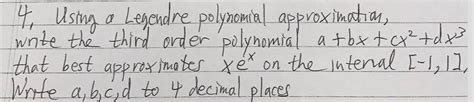 4, Using a Legendre polynomial approximation,
write the third order polynomial a+bx+cx²+dx³
that best approximates xeˣ on the interval [-1,1].
Write a,b,c,d to 4 decimal places